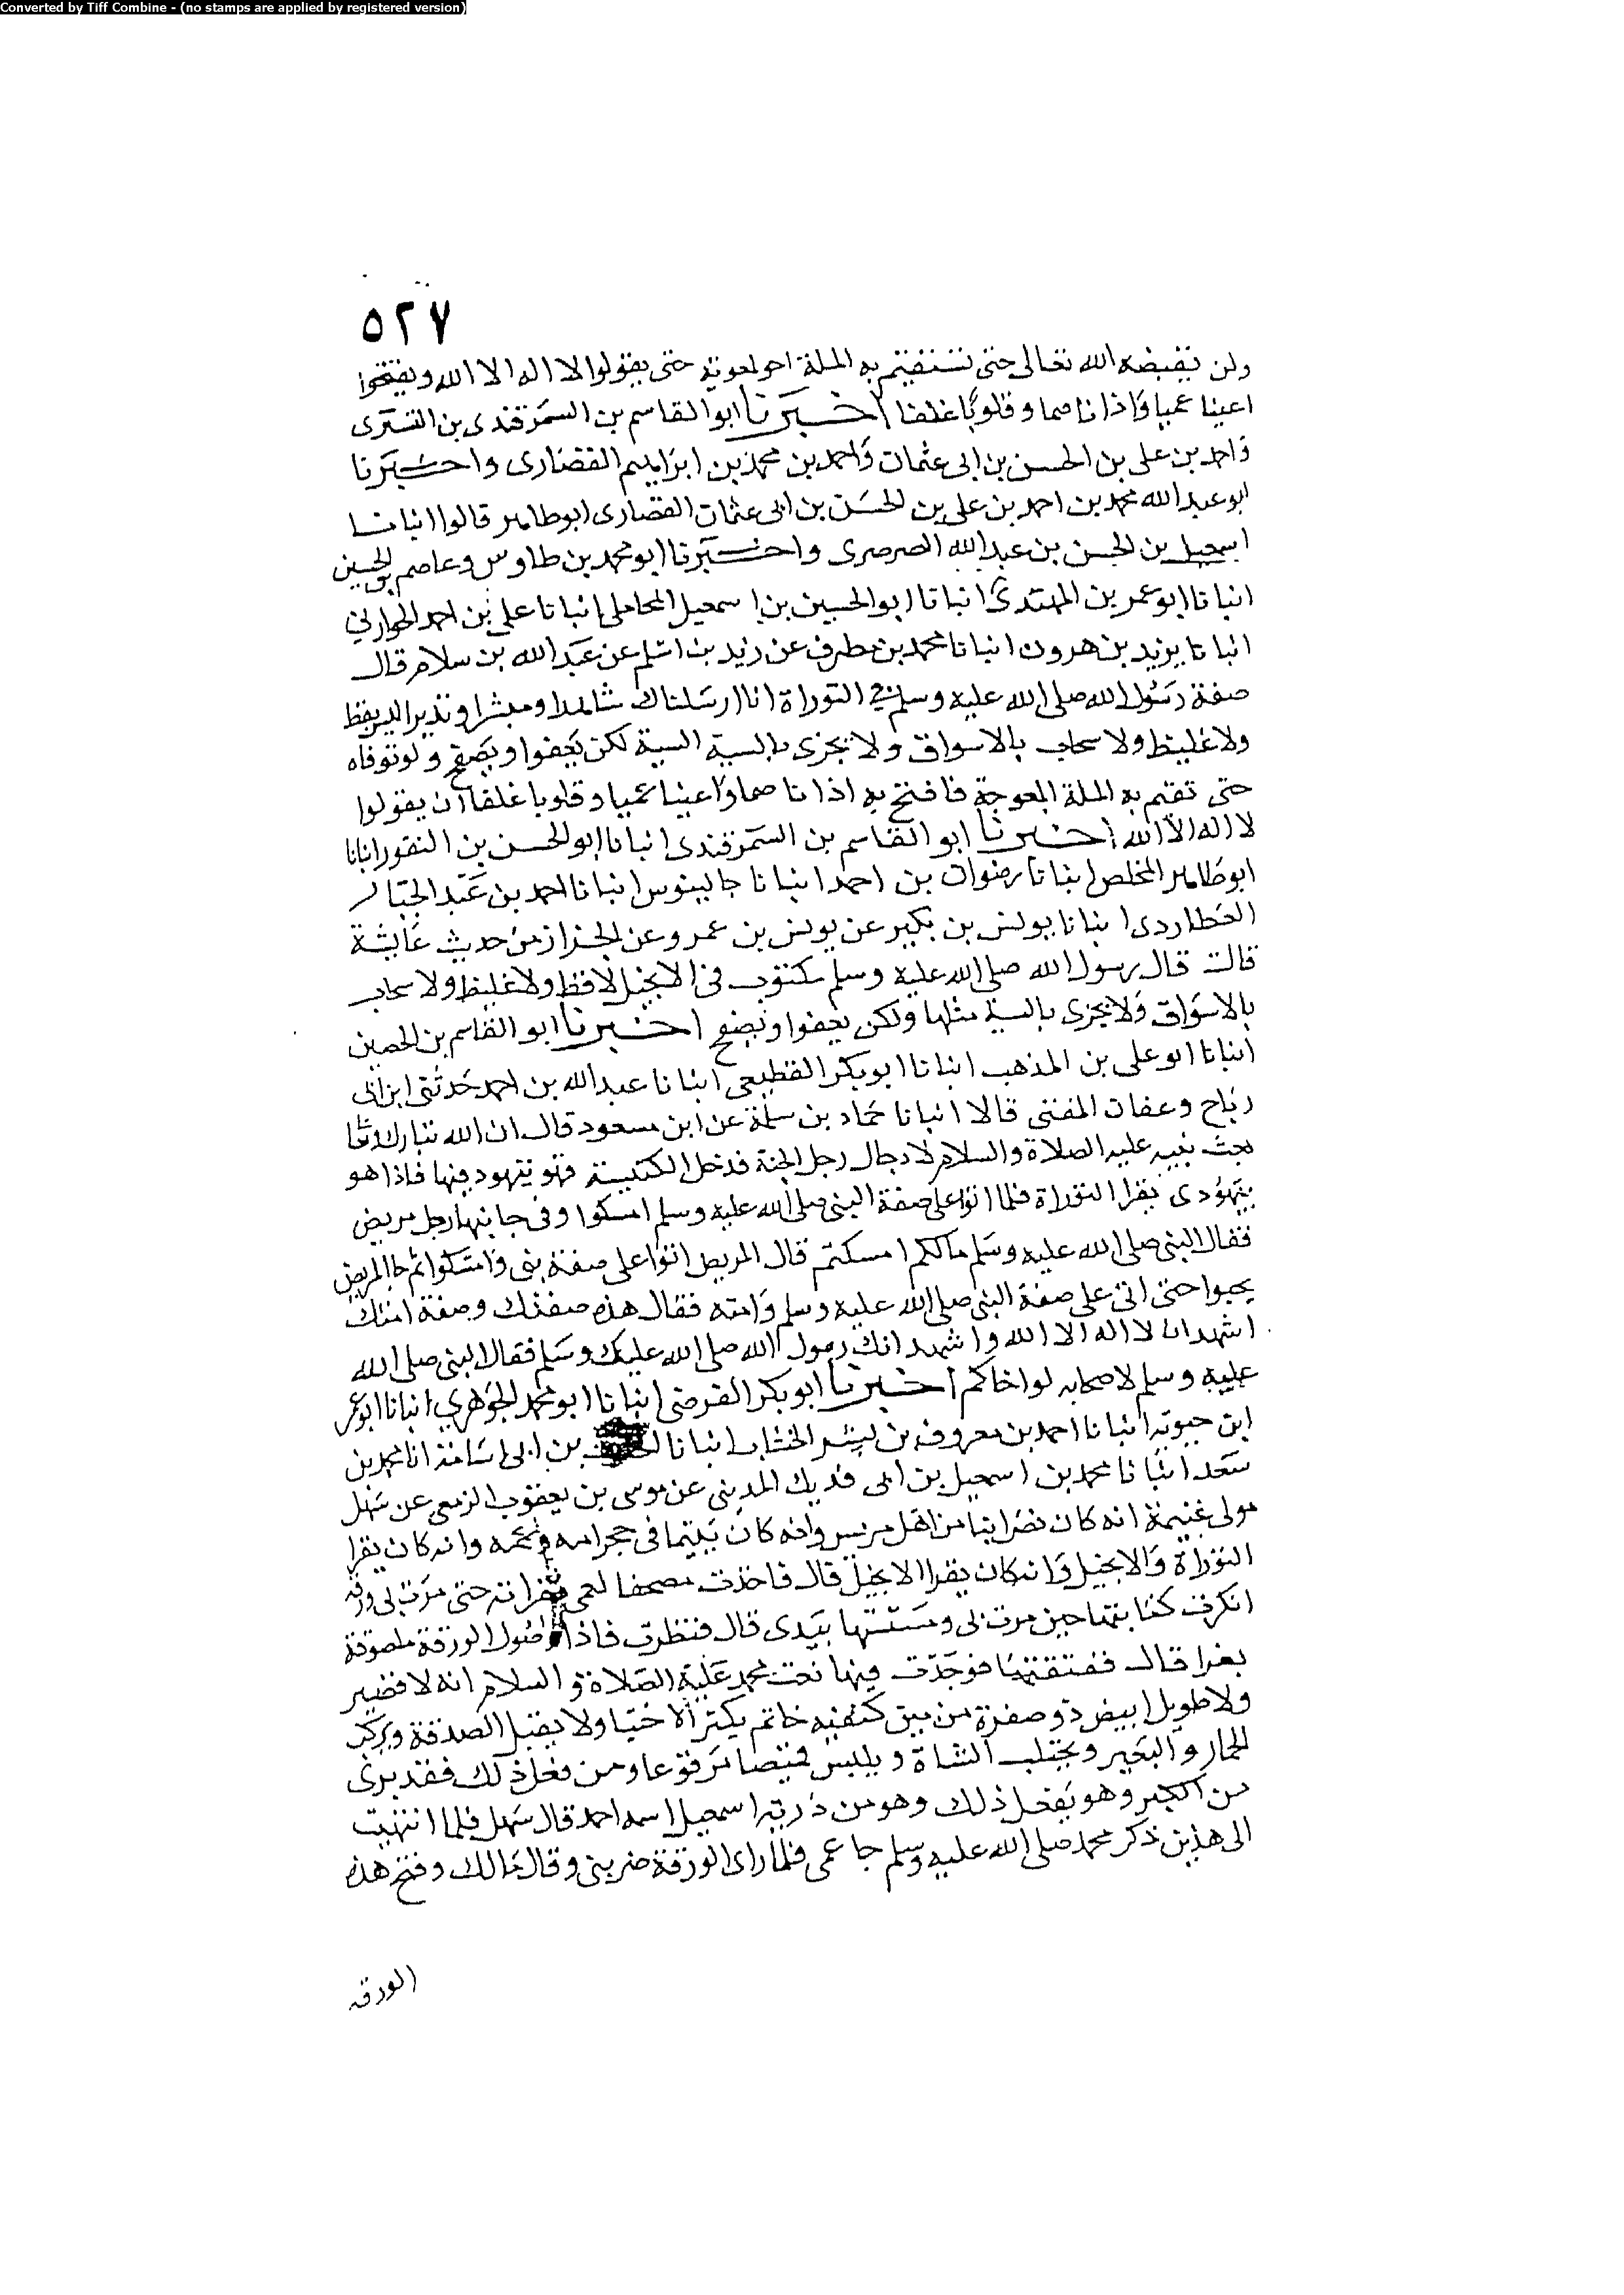 Converted by Tiff Combine - (no stamps are applied by registered version)
٥٢٧
ولن يقبضه الله تعالى حتى تستقيم به الملة حتى يقولوا لا اله الا الله ويفتحوا
اعينا عميا واذانا صما وقلوبا غلفا اخبرنا ابو القاسم بن السمرقندى بن التسترى
واحمد بن على بن الحسن بن ابى عثمان واحمد بن محمد بن ابراهيم القصارى واخبرنا
ابو عبد الله محمد بن احمد بن على بن الحسن بن ابى عثمان القصارى ابو طاهر قالوا انبانا
اسمعيل بن الحسن بن عبد الله الصرصرى واخبرنا ابو محمد بن طاوس وعاصم بن الحسين
انبانا ابو عمر بن المهتدى انبانا ابو الحسين بن اسمعيل المحاملى انبانا على بن احمد الجواربي
انبانا يزيد بن هرون انبانا محمد بن مطرف عن زيد بن اسلم عن عبد الله بن سلام قال
صفة رسول الله صلى الله عليه وسلم في التوراة انا ارسلناك شاهدا ومبشرا ونذيرا ليس بفظ
ولا غليظ ولا سخاب بالاسواق ولا يجزى بالسية السية لكن يعفوا ويصفح ولو توفاه
حتى تقيم به الملة المعوجة فافتح به اذانا صما واعينا عميا وقلوبا غلفا ان يقولوا
لا اله الا الله اخبرنا ابو القاسم بن السمرقندى انبانا ابو الحسن بن النقور انبانا
ابو طاهر المخلص انبانا رضوان بن احمد انبانا جالينوس انبانا احمد بن عبد الجبار
العطاردى انبانا يونس بن بكير عن يونس بن عمرو عن الجزاز من حديث عايشة
قالت قال رسول الله صلى الله عليه وسلم مكتوب فى الانجيل لا فظ ولا غليظ ولا سخاب
بالاسواق ولا يجزى بالسية مثلها ولكن يعفوا ويصفح اخبرنا ابو القاسم بن الحصين
انبانا ابو على بن المذهب انبانا ابو بكر القطيعى انبانا عبد الله بن احمد حدثنى ابن ابى
رباح وعفان المفتى قالا انبانا حماد بن سلمة عن ابن مسعود قال ان الله تبارك وتعا
بعث نبيه عليه الصلاة والسلام لادخال رجل الجنة فدخل الكنيسة فهو يتهود فيها فاذا هو
بيهودى يقرا التوراة فلما اتوا على صفة النبى صلى الله عليه وسلم امسكوا وفى جانبها رجل مريض
فقال النبى صلى الله عليه وسلم مالكم امسكتم قال المريض اتوا على صفة نبى فامسكوا ثم جا المريض
يحبوا حتى اتى على صفة النبى صلى الله عليه وسلم وامته فقال هذه صفتك وصفة امتك
اشهد ان لا اله الا الله واشهد انك رسول الله صلى الله عليك وسلم فقال النبى صلى الله
عليه وسلم لاصحابه لوا اخاكم اخبرنا ابو بكر الفرضى انبانا ابو محمد الجوهري انبانا ابو عمر
ابن حيويه انبانا احمد بن معروف بن بشر الخشاب انبانا بن ابى اسامة انا محمد بن
سعد انبانا محمد بن اسمعيل بن ابى فديك المدينى عن موسى بن يعقوب الزمعى عن سهل
مولى غنيمة انه كان نصرانيا من اهل مريس وانه كان يتيما فى حجر امه وعمه وانه كان يقرا
التوراة والانجيل وانه كان يقرا الانجيل قال فاخذت مصحفا لعمى فقراته حتى مرت بى ورقة
انكرت كتابتها حين مرت بى ومسستها بيدى قال فنظرت فاذا فصول الورقة ملصوقة
بغرا قال ففتقتها فوجدت فيها نعت محمد عليه الصلاة والسلام انه لا قصير
ولا طويل ابيض ذو صفرة من بين كتفيه خاتم يكثر الاحتبا ولا يقبل الصدقة ويركب
الحمار والبعير ويحتلب الشاة ويلبس قميصا مرقوعا ومن فعل ذلك فقد برى
من الكبر وهو يفعل ذلك وهو من ذرية اسمعيل اسمه احمد قال سهل فلما انتهيت
الى هذين ذكر محمد صلى الله عليه وسلم جا عمى فلما راى الورقة ضربنى وقال مالك وفتح هذه
الورقه